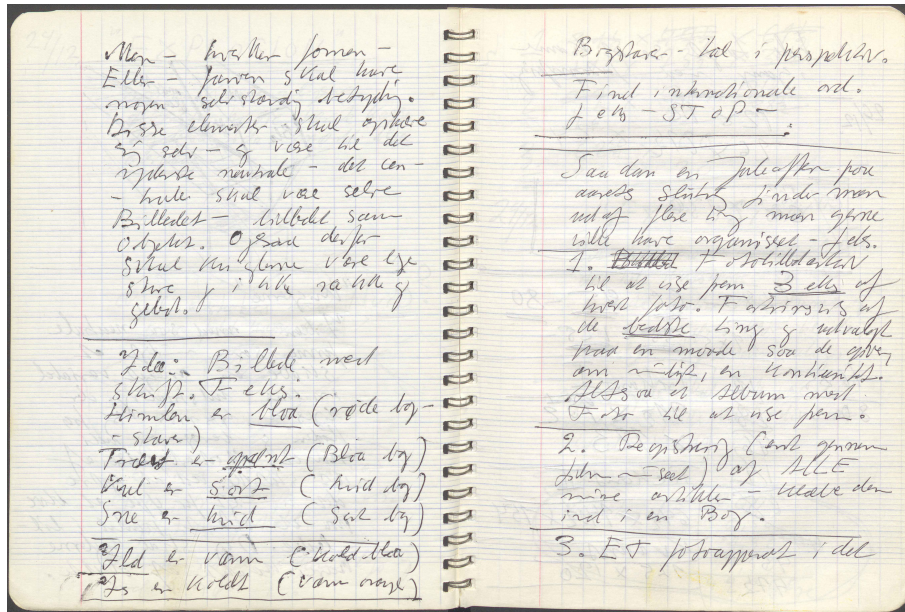 Men – hverken formen –
Eller – farven skal have
nogen selvstændig betydig.
Disse elementer skal ophæve
sig selv – og være til det
yderste neutrale – det cen-
- trale skal være selve
Billedet – billedet som
Objekt. Ogsaa derfor
skal kuglerne være lige
store og i ikke række g
Ide: Billede med
skrift. F eks:
Himlen er blaa (røde bog-
- staver)
Træet er grønt (Blaa bog)
Kul er Sort (hvid bog)
Sne er hvid (Sort bog)
Ild er varm (Kold blaa)
Is er Koldt (Varm orange)
Bogstaver – tal i perspektiv.
Find internationale ord.
f eks – STOP –
Saadan en Juleaften paa
aarets slutning finder man
ud af flere ting man gerne
ville have organiseret – f eks.
1. Fotobilledarkiv
til at vise frem 3 eks af
hvert foto. Fortrinsvis af
de bedste ting g udvalgt
paa en maade saa de giver,
om muligt, en Kontinuitet.
Altsaa et Album med
Foto til at vise frem.
2. Registrering (evt gennem
) af ALLE
mine artikler – klæbe dem
ind i en Bog.
3. ET fotoapparat i det